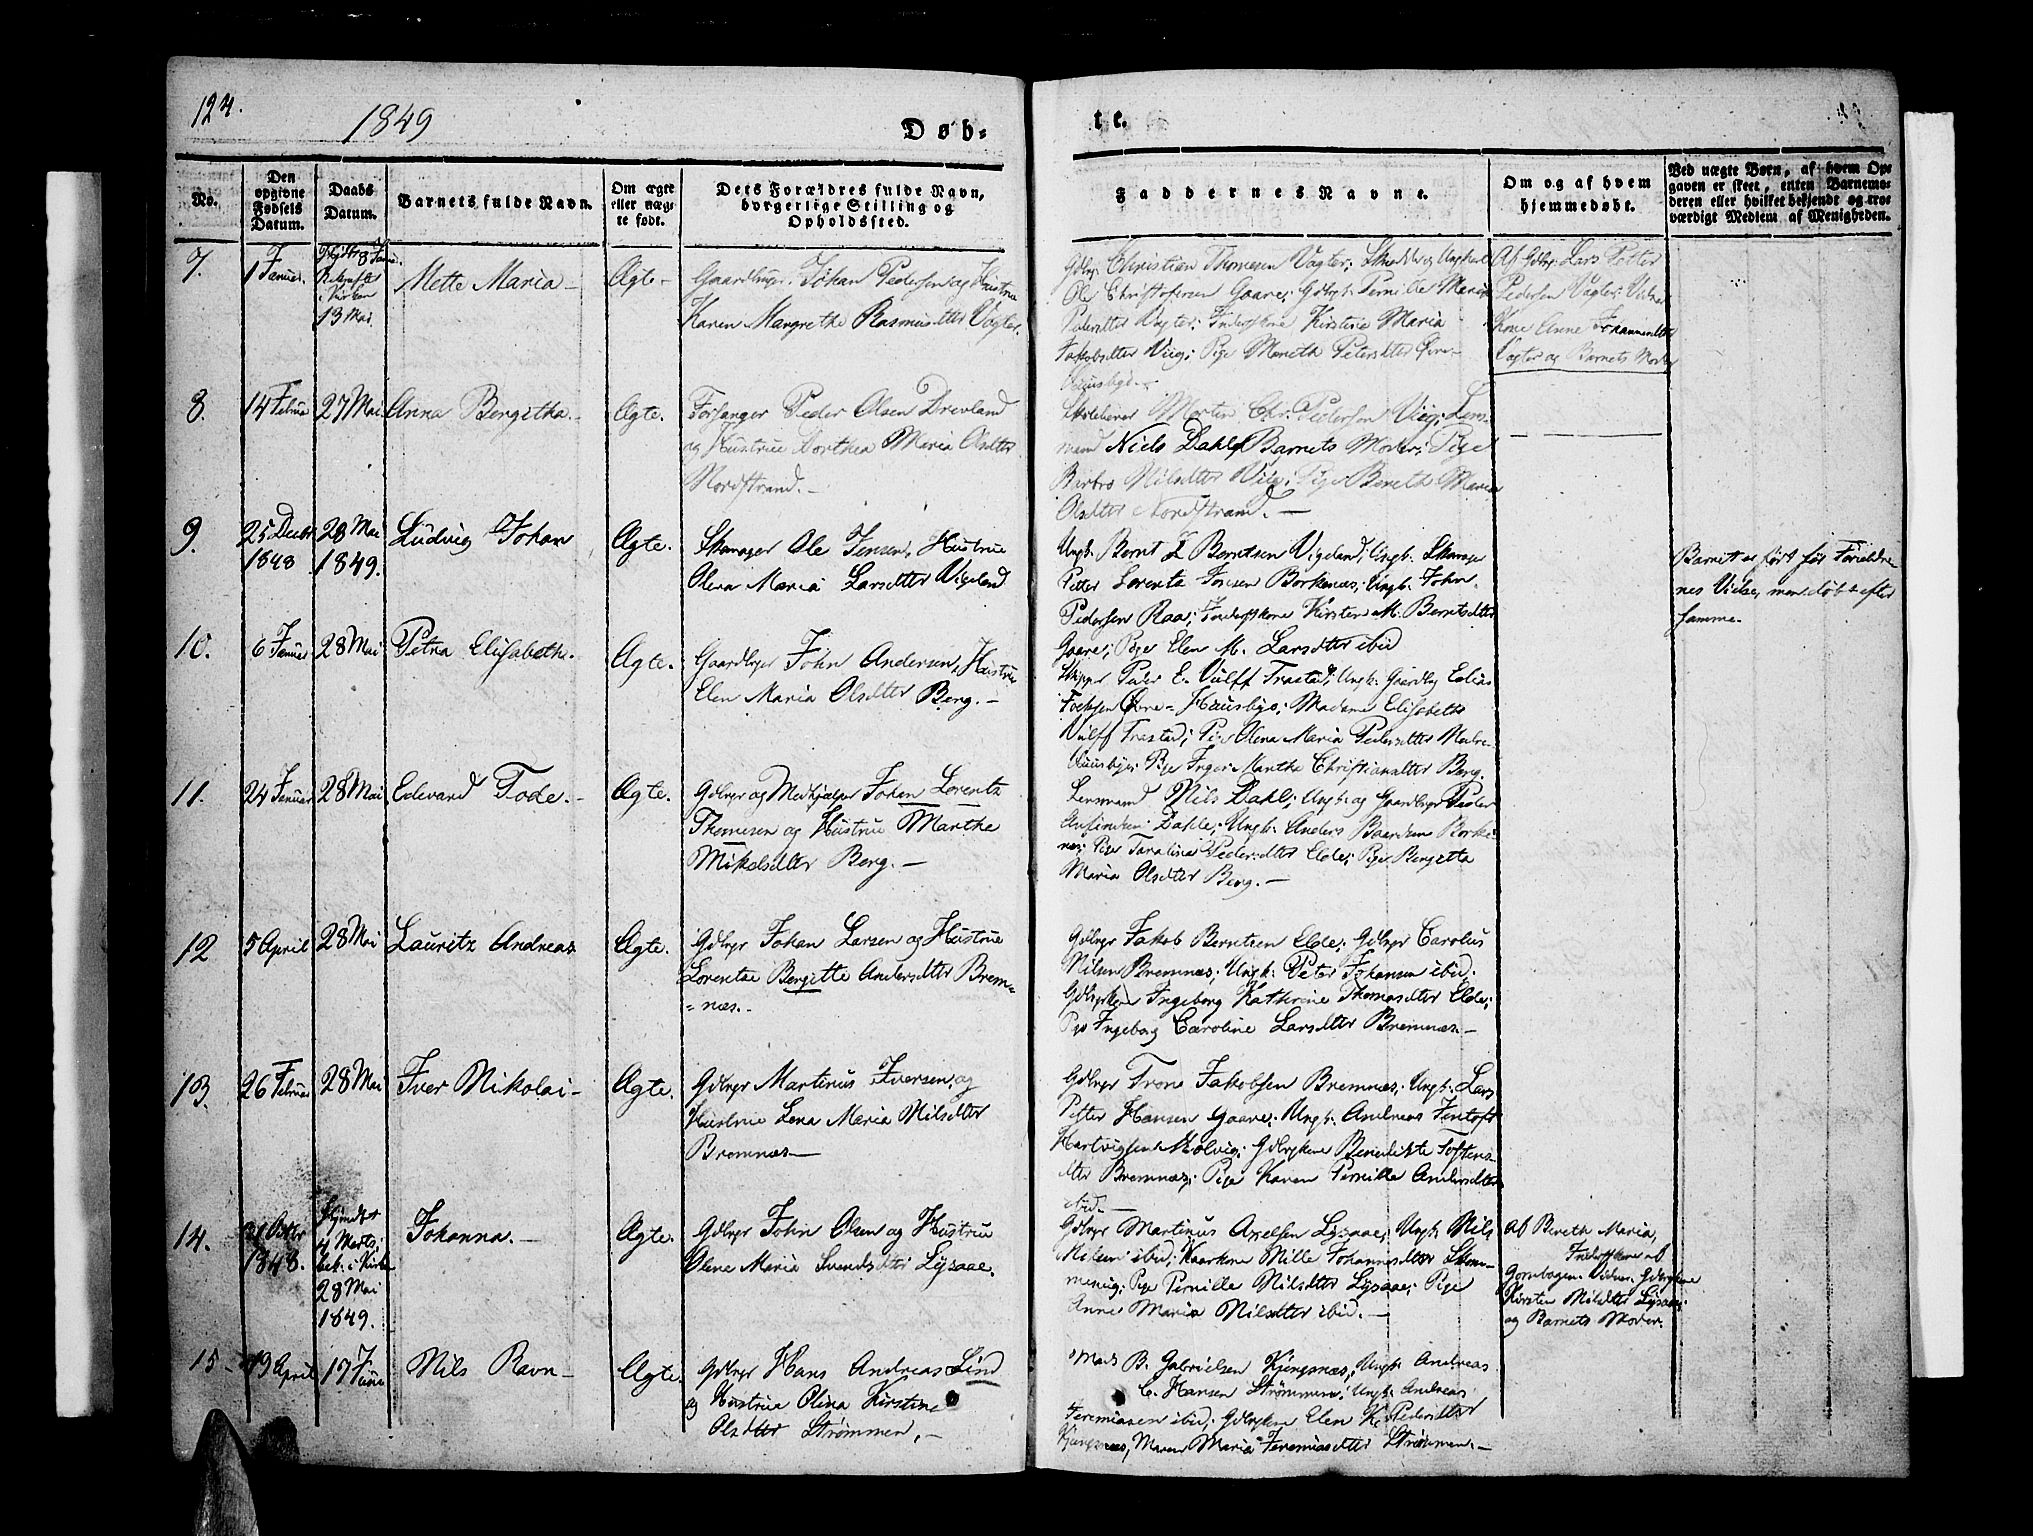 124.
1849
Døb-
te.
No.
Den opgivne Fødsels Datum.
Daabs Datum.
Barnets fulde Navn.
Om ægte eller uægte født.
Dets Forældres fulde Navn, borgerlige Stilling og Opholdssted.
Faddernes Navne.
Om og af hvem hjemmedøbt.
Ved uægte Børn, af hvem Opgaven er skeet, enten Barnemoderen eller hvilket bekjendt og troværdigt Medlem af Menigheden.
7.
1 Januar.
8 Janu.
i Kirken
13 Mai.
Mette Maria -
Ægte -
Gaardbrger. Johan Pedersen og Hustrue
Karen Margrethe Rasmusdtter Vogter.
Gdbrg. Christian Thomesen Vagter;
Ole Christofersen Gaare; Gdbrgk. Pernille Maria
Pedersdtter Vagter; Inderstkone Kirstine Maria
Jakobsdtter Viig; Pige Mareth Petersdtter Øvre-
Hausbye. -
Af Gdbrg. Lars Petter
Pedersen Vagter; Vidner
Kone Anne Johannesdtter
Vagter og Barnets Moder
8.
14 Februar
27 Mai
Anna Bergitha. -
Ægte.
Forsanger Peder Olsen Drevland
og Hustrue Dorthea Maria Olsdtter
Nordstrand. -
Skolelærer Morten Chr. Pedersen Viig; Lens-
mand Niels Dahl; Barnets Moder; Pige
Barbro Nilsdtter Viig; Pige Bereth Maria
Olsdtter Nordstrand. -
9.
25 Decbr
1848
28 Mai
1849.
Ludvig Johan
Ægte.
Skomager Ole Jensen, Hustrue
Olena Maria Larsdtter Vigeland
Ungk. Bernt L Berntsen Vigeland; Ungk. Skomager
Petter Lorentz Jensen Borkenæs; Ungk. John
Pedersen Raa; Inderstkone Kirsten M. Berntsdtter
Gaare; Pige Elen M. Larsdtter ibid
Barnet er født før Forældre-
nes Vielse, men døbt efter
samme.
10.
6 Januar
28 Mai
Petra Elisabeth.
Ægte.
Gaardbrger John Andersen, Hustrue
Elen Maria Olsdtter Berg. -
Skipper Peder E. Vulff Trastad; Ungk. Gaardbrg Edias
Øvre-Hausbye; Madame Elisabeth
Vulff Trastad; Pige Olena Maria Pedersdtter Nedre-
Hausbye; Pige Inger Marthe Christiansdtter Berg.
11.
24 Januar
28 Mai
Edevard Tode. -
Ægte.
Gdbrgr og Medhjælper Johan Lorentz
Thomesen og Hustrue Marthe
Mikelsdtter Berg. -
Lensmand Nils Dahl; Ungk. og Gaardbrger Peder
Dahle; Ungk. Anders Borke-
næs; Pige Pedersdtter Elde; Pige Bergitta
Maria Olsdtter Berg. -
12
5 April
28 Mai
Lauritz Andreas
Ægte.
Gdbrgr Johan Larsen og Hustrue
Lorentze Bergitte Andersdtter Brem=
=næs. -
Gdbrgr Jakob Berntsen Elde; Gdbrgr Carolus
Nilsen Bremnæs; Ungk. Peter Johansen ibid;
Gdbrgkone Ingeborg Kathrine Thomasdtter Elde;
Pige Ingeborg Caroline Larsdtter Bremnæs. -
13.
26 Februar
28 Mai
Iver Nikolai -
Ægte.
Gdbrgr Martinus Iversen, og
Hustrue Lena Maria Nilsdtter
Bremnæs -
Gdbrgr Trone Jakobsen Bremnæs; Ungk. Lars
Petter Hansen Gaare; Ungk. Andreas Jentoft
Hartvigsen Molvig; Gdbrgkone Benedikte Toftens-
dtter Bremnæs; Pige Karen Pernille Andersdtter
ibid. -
14.
21 Octbr
1848.
4 Marts
bek. i Kirken
28 Mai
1849.
Johanna. -
Ægte.
Gdbrgr John Olsen og Hustrue
Olene Maria Svendsdtter Lysaae.
Gdbrgr Martinus Axelsen Lysaae; Ungk. Nils
Nilsen ibid; Nille Johannesdtter
Pige Pernille Nilsdtter Lysaae; Pige
Anne Maria Nilsdtter ibid. -
Af Bereth Maria,
Inderstkone af
Vidner Gdbrgkone
Kirsten Nilsdtter Lysaae;
og Barnets Moder.
15 -
19 April
17 Juni
Nils Ravn -
Ægte.
Gdbrgr Hans Andreas Lind
og Hustrue Olina Kirstine
Olsdtter Strømmen. -
Mads B. Gabrielsen Kjengsnæs; Ungk. Andreas
C. Hansen Strømmen; Ungk. Andreas
Jeremiasen ibid; Gdbrgkone Elen K. Pedersdtter
Kjengsnæs, Maren Maria Jeremiasdtter Strømmen. -